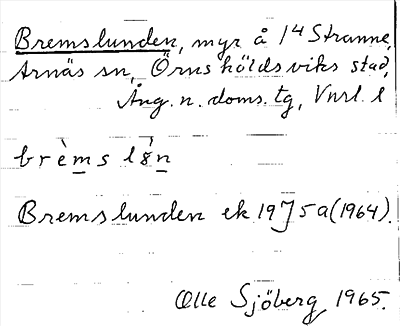 Bremslunden, myr å 1⁴ Stranne,
Arnäs sn, Örnsköldsviks stad,
Ång. n. doms. tg, Vnrl. l
brèms l8̀n
Bremslunden ek 19J5a (1964).
Olle Sjöberg 1965.